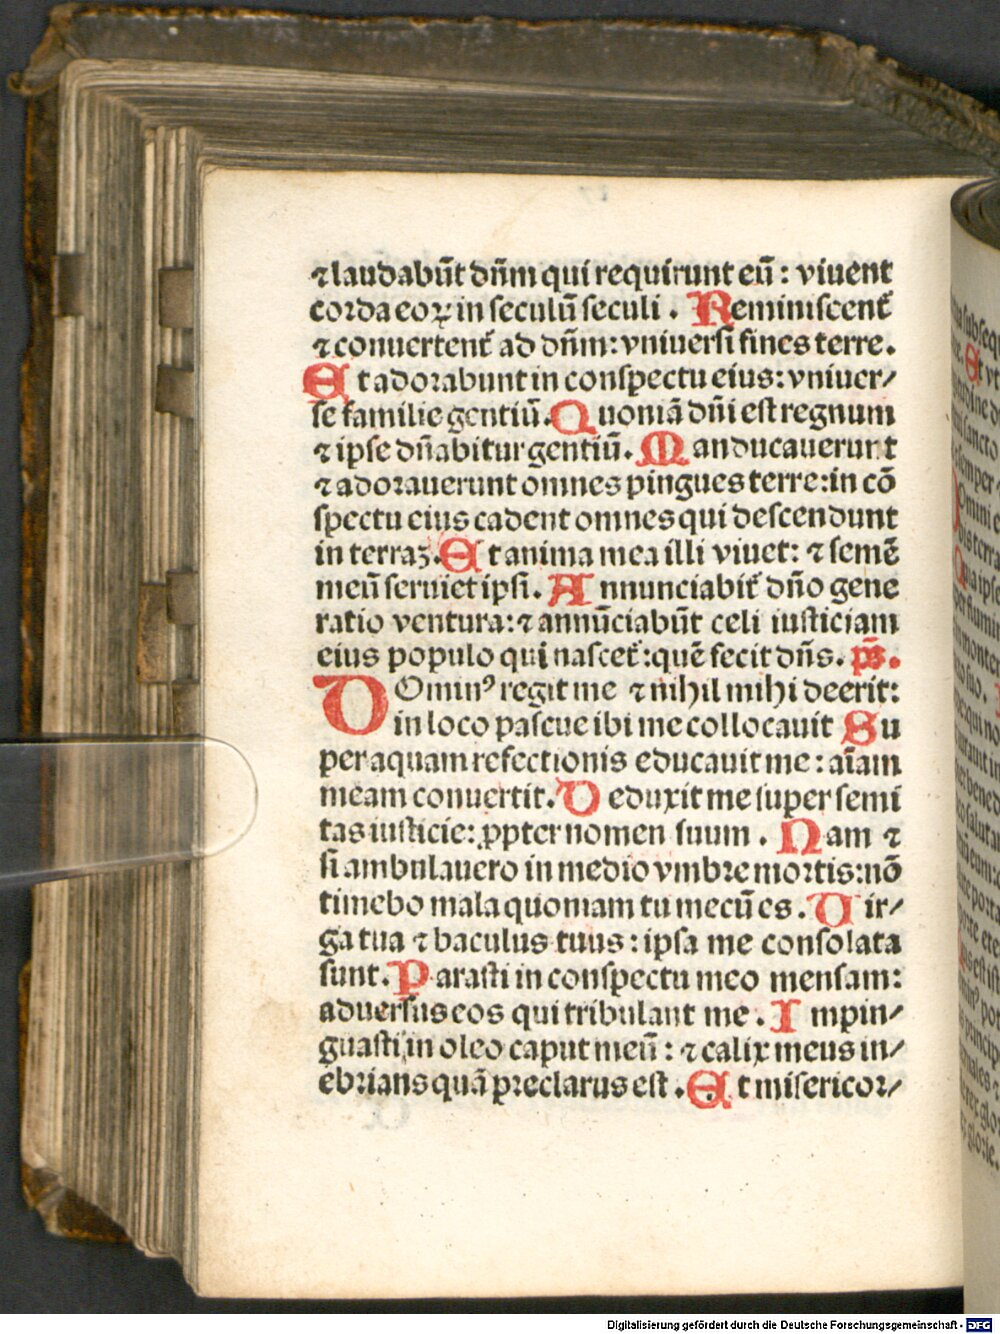 ⁊ laudabūt dn̄m qui requirunt eū : viuent
corda eoꝝ in seculū seculi . Reminiscent᷑
⁊ conuertent᷑ ad dn̄m : vniuersi fines terre.
Et adorabunt in conspectu eius : vniuer⸗
se familie gentiū. Quoniā dn̄i est regnum
⁊ ipse dn̄abitur gentiū. Manducauerunt
⁊ adorauerunt omnes pingues terre : in cō
spectu eius cadent omnes qui descendunt
in terraꝫ. Et anima mea illi viuet : ⁊ semē
meū seruiet ipsi. Annunciabit᷑ dn̄o gene
ratio ventura : ⁊ annūciabūt celi iusticiam
eius populo qui nascet᷑ : quē fecit dn̄s. ps̄.
DOminꝰ regit me ⁊ nihil mihi deerit :
in loco pascue ibi me collocauit Su
per aquam refectionis educauit me : aīam
meam conuertit. Deduxit me super semi
tas iusticie : ꝓpter nomen suum . Nam ⁊
si ambulauero in medio vmbre mortis : nō
timebo mala quoniam tu mecū es . Vir⸗
ga tua ⁊ baculus tuus : ipsa me consolata
sunt. Parasti in conspectu meo mensam :
aduersus eos qui tribulant me . Impin⸗
guasti in oleo caput meū : ⁊ calix meus in⸗
ebrians quā preclarus est . Et misericor⸗
Digitalisierung gefördert durch die Deutsche Forschungsgemeinschaft - DFG